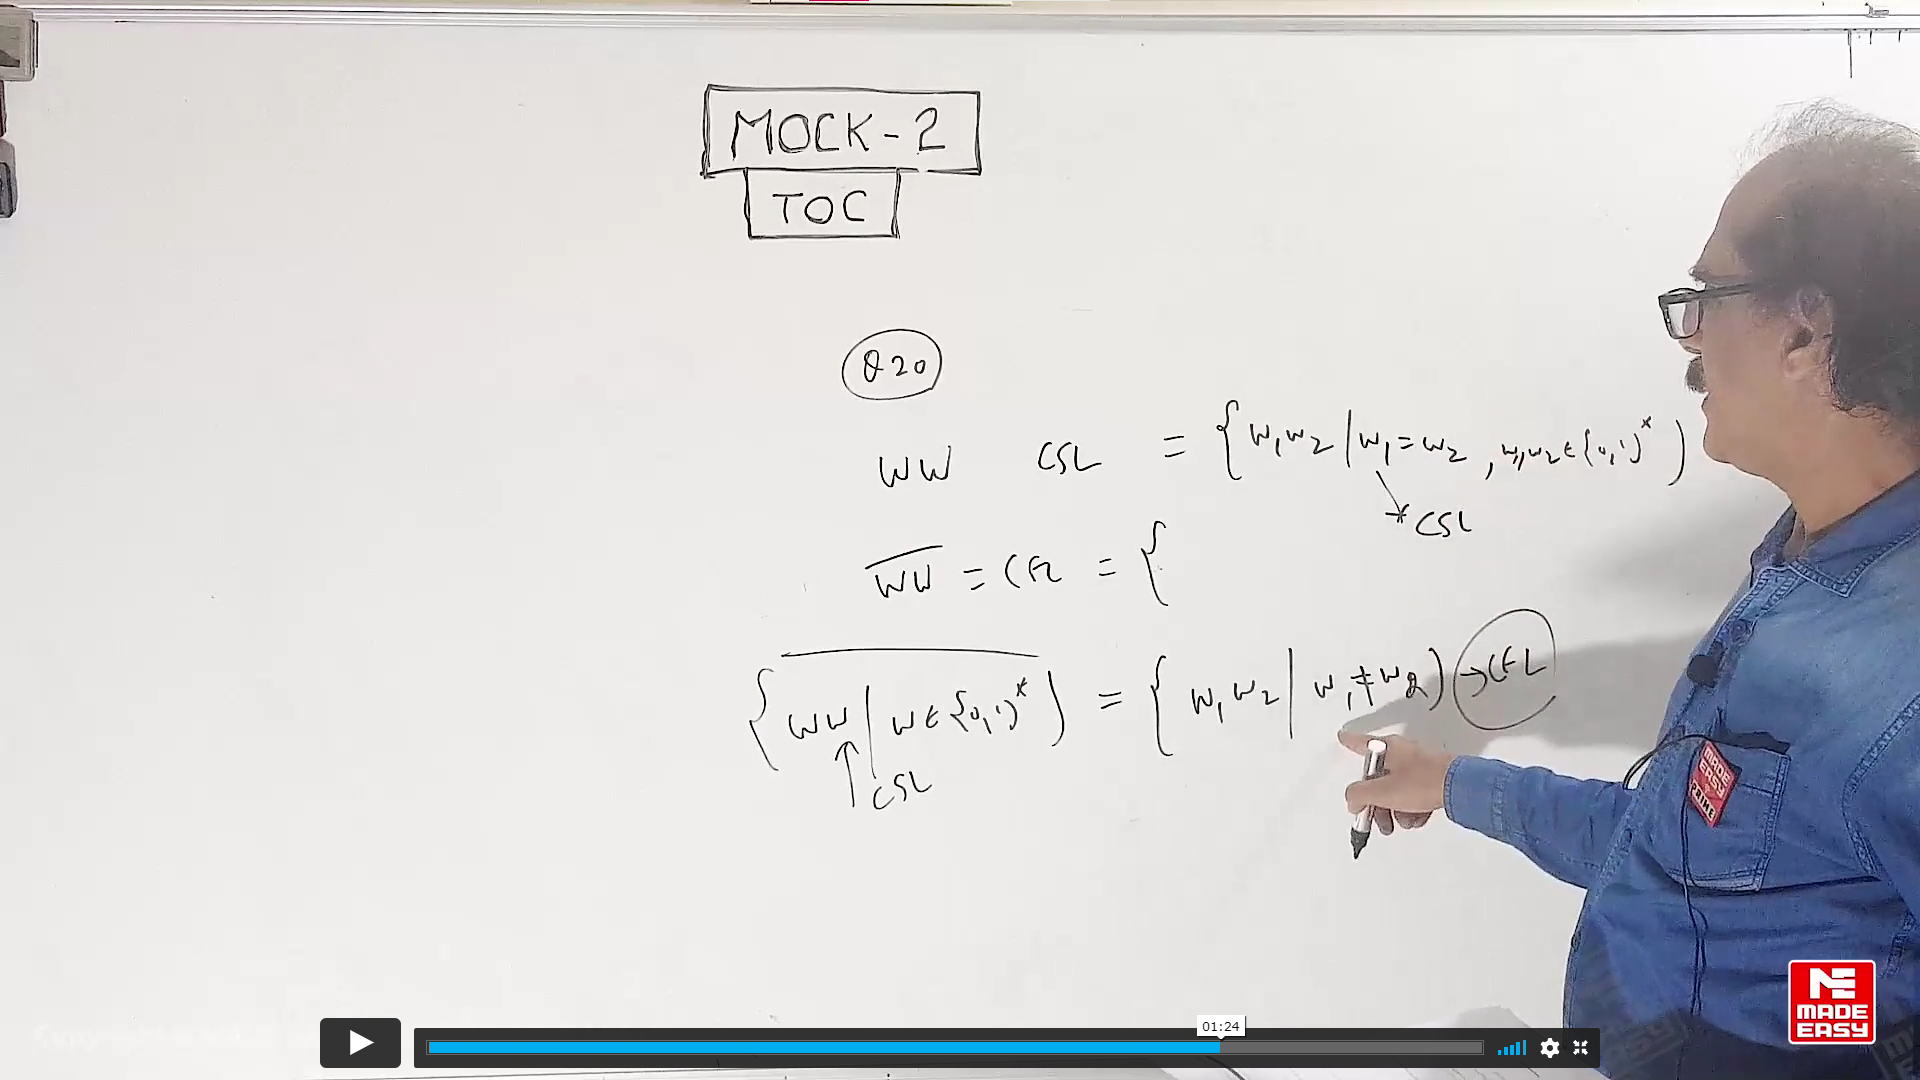 MOCK-2
TOC
Q20
WW CSL = { w₁w₂ | w₁=w₂ , w₁,w₂ ∈ {0,1}* }
CSL
W̅W̅ = CFL = {
{ WW | W ∈ {0,1}* } = { w₁w₂ | w₁≠w₂ } → CFL
CSL
MADE EASY
PRIME
01:24
ME
MADE
EASY